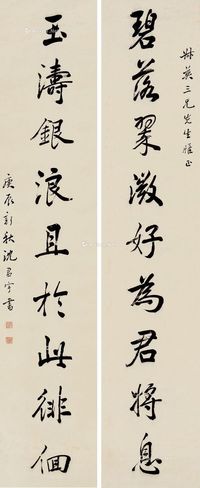 叔英三兄先生雅正
碧落翠微好為君將息
玉濤銀浪且於此徘徊
庚辰新秋沈書